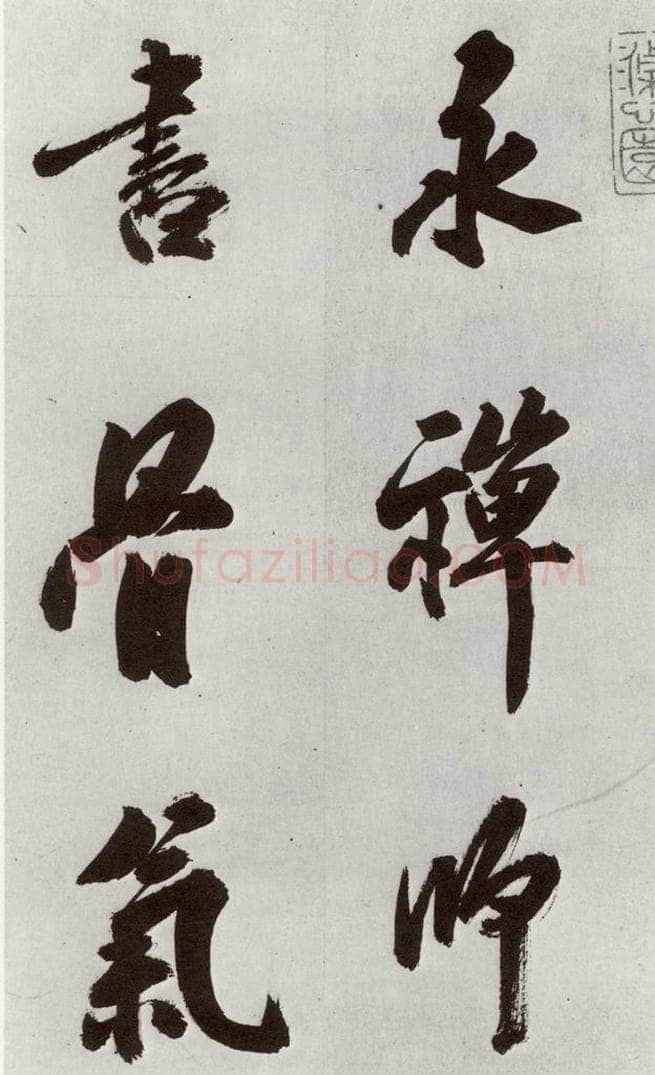 永禪師
書骨氣
Shufaziliao.COM